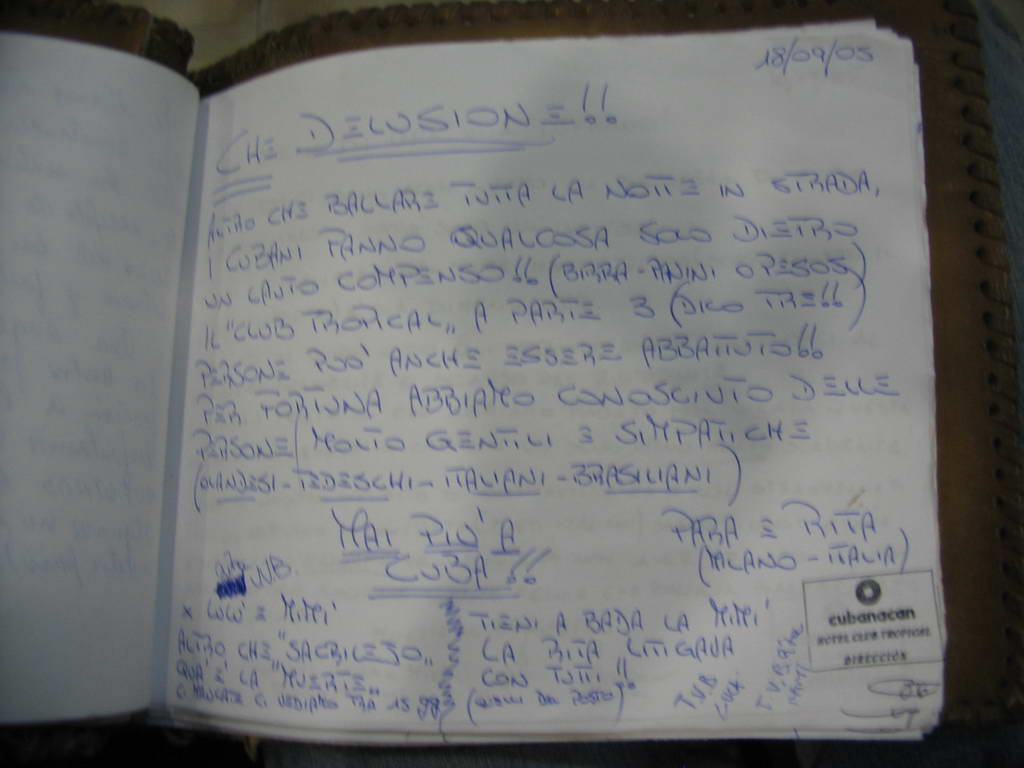 18/09/05
CHE DELUSIONE!!
ALTRO CHE BALLARE TUTTA LA NOTTE IN STRADA,
I CUBANI FANNO QUALCOSA SOLO DIETRO
UN LAUTO COMPENSO!! (BIRRA-PANINI O PESOS)
IL "CLUB TROPICAL" A PARTE 3 (DICO TRE!!)
PERSONE PUO' ANCHE ESSERE ABBATTUTO!!
PER FORTUNA ABBIAMO CONOSCIUTO DELLE
PERSONE MOLTO GENTILI E SIMPATICHE
(OLANDESI-TEDESCHI-ITALIANI-BRASILIANI)
MAI PIU' A
CUBA!!
PARA E RITA
(MILANO-ITALIA)
NB.
x LULU' E MIMI'
ALTRO CHE "SACRILEGO"
QUA' E' LA "MUERTE"
CI MANCATE CI VEDIAMO TRA 15 gg
TIENI A BADA LA MIMI'
LA RITA LITIGAVA
CON TUTTI!!
(QUELLI DEL POSTO)
T.V.B
T.V.B.
cubanacan
HOTEL CLUB TROPICAL
DIRECCIÓN